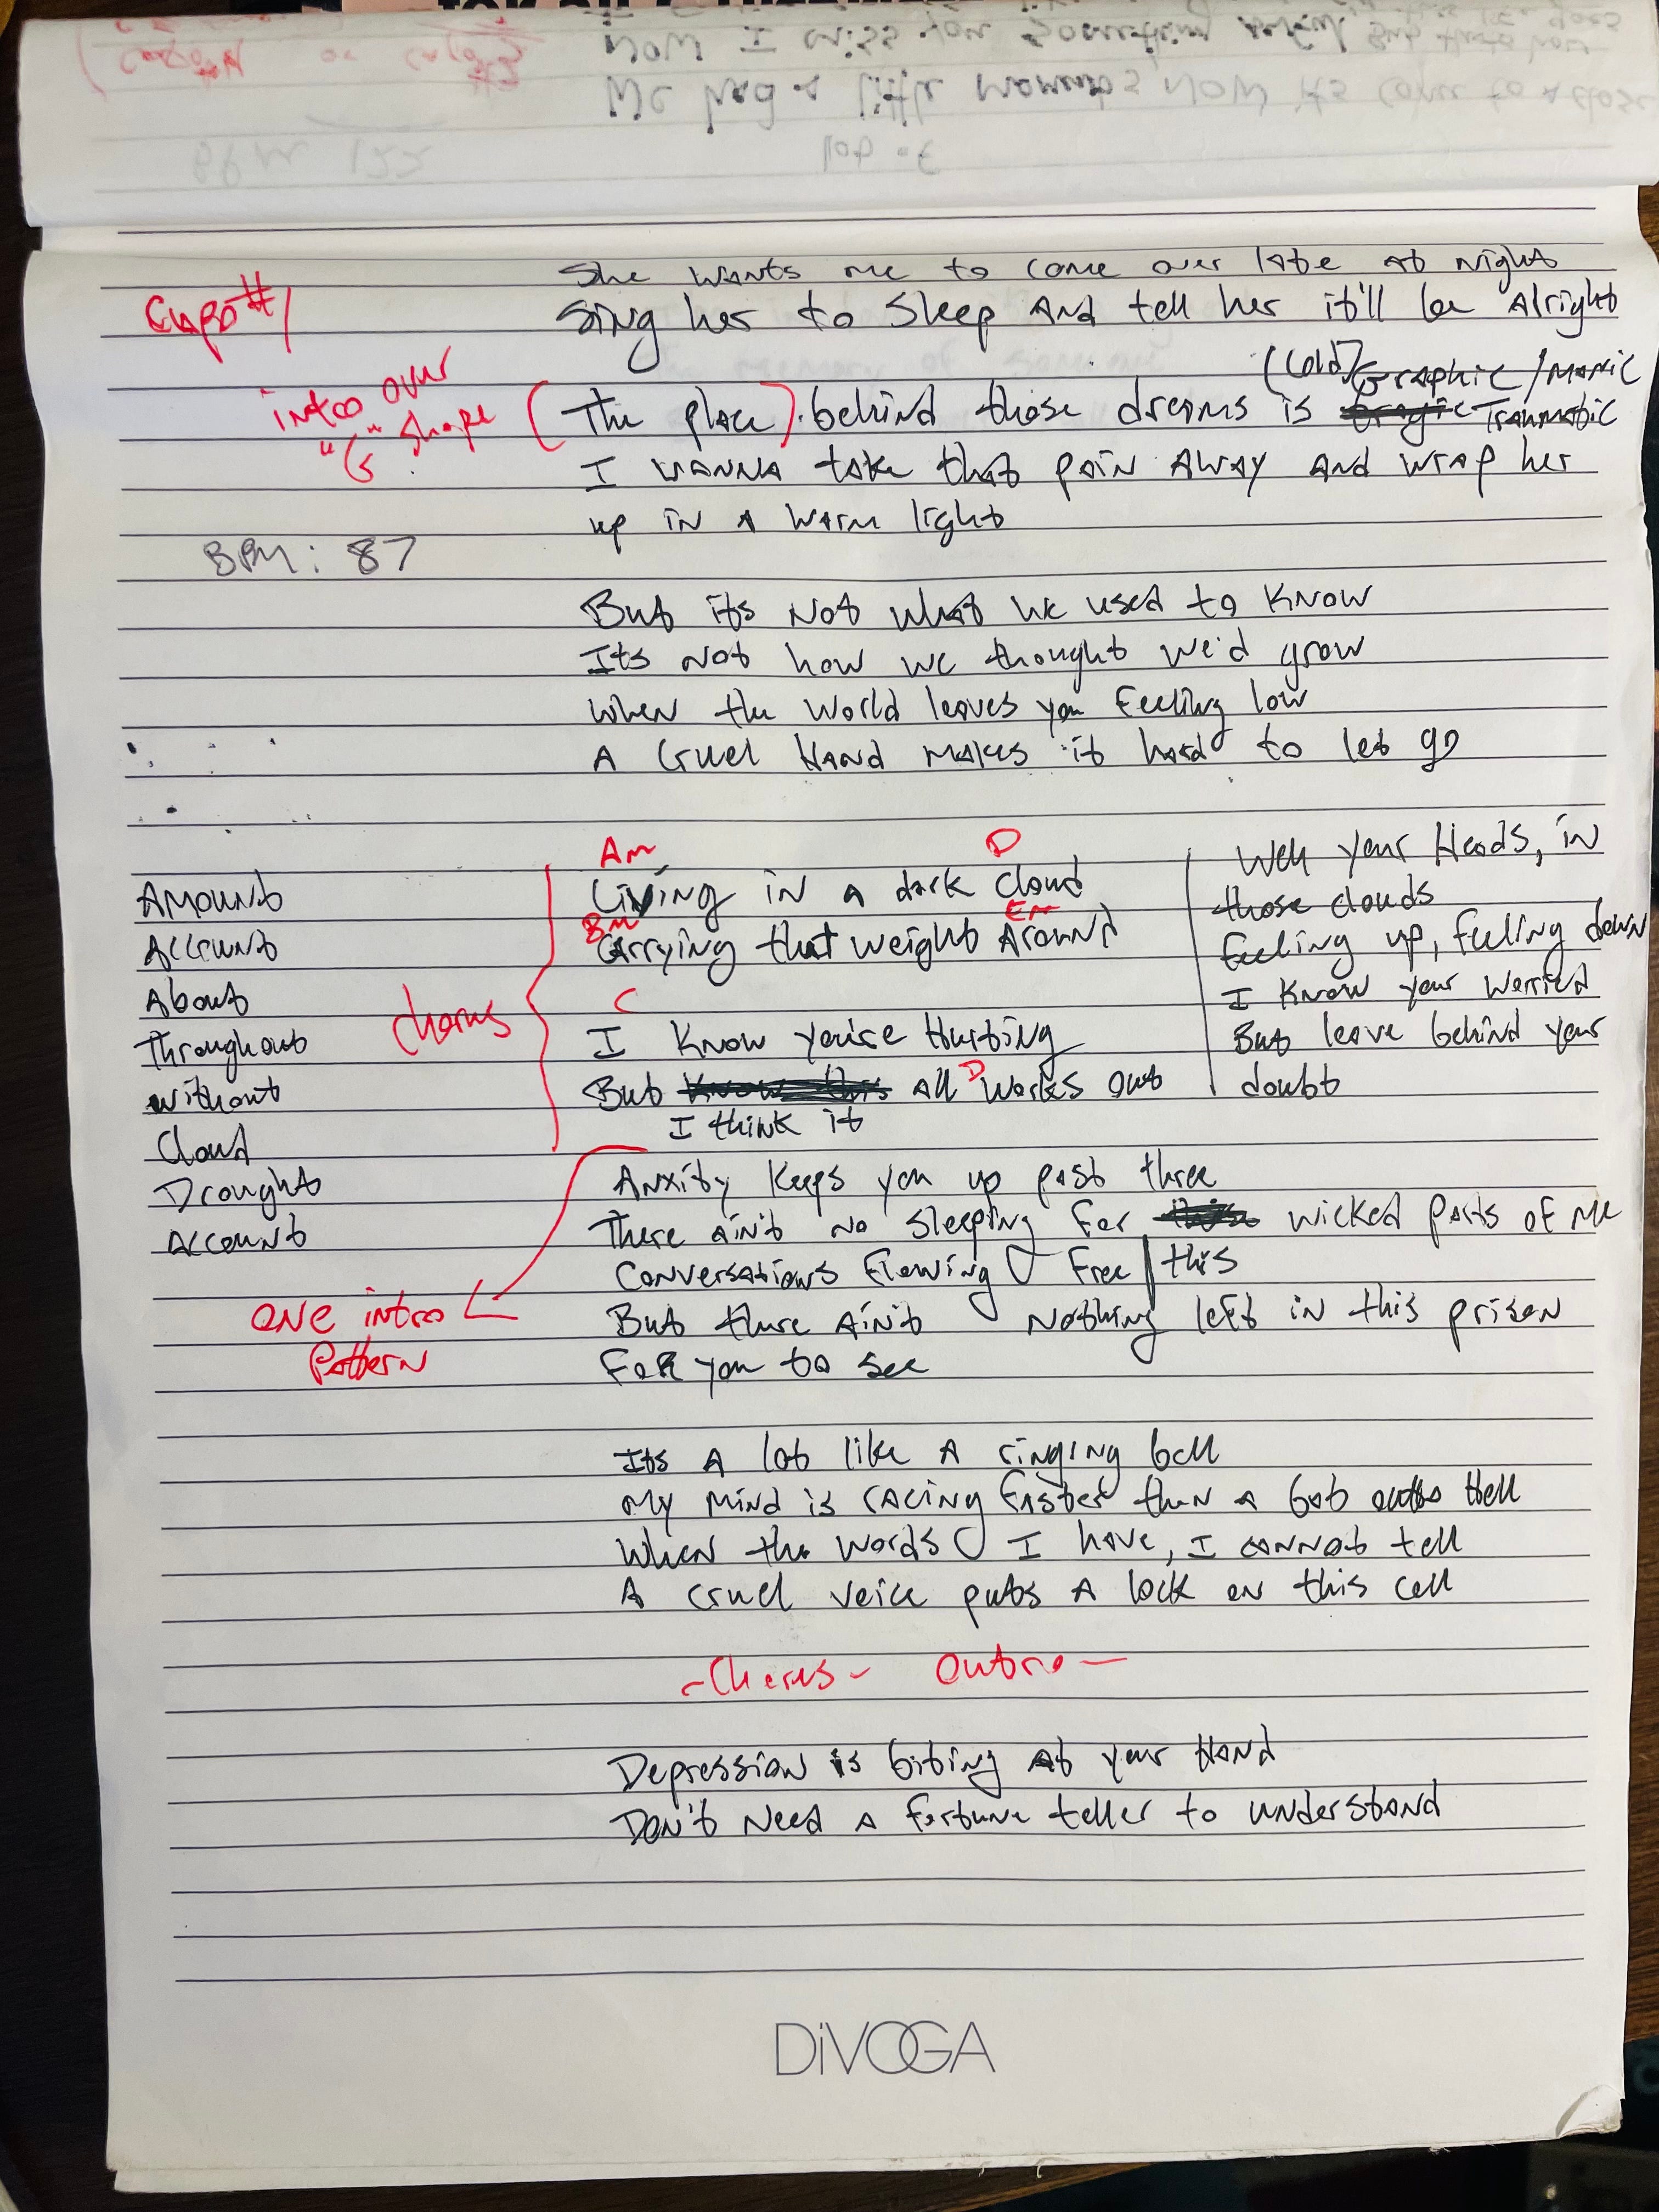 She wants me to come over late at night
Capo #1
Sing her to Sleep And tell her it'll be Alright
intro over
"G" shape
(Cold) Graphic / Manic
(The place) behind those dreams is tragic Traumatic
I wanna take that pain away and wrap her
up in a warm light
BPM: 87
But its not what we used to know
Its not how we thought we'd grow
When the world leaves you feeling low
A Cruel Hand makes it hard to let go
Am D
Living in a dark cloud
Bm Em
Carrying that weight Around
C
I Know you're Hurting
But know this all D works out
I think it
chorus
Well your Heads, in
those clouds
feeling up, feeling down
I know your worried
But leave behind your
doubt
Amount
Account
About
Throughout
without
Cloud
Drought
Account
Anxity keeps you up past three
There ain't no sleeping for wicked parts of me
Conversations flowing free / this
But there Ain't nothing left in this prison
For you to see
one intro
pattern
Its A lot like A ringing bell
My mind is racing faster then a bat outta Hell
When the words I have, I cannot tell
A cruel voice puts A lock on this cell
- Chorus - Outro -
Depression is biting at your Hand
Don't Need A fortune teller to understand
DiVOGA